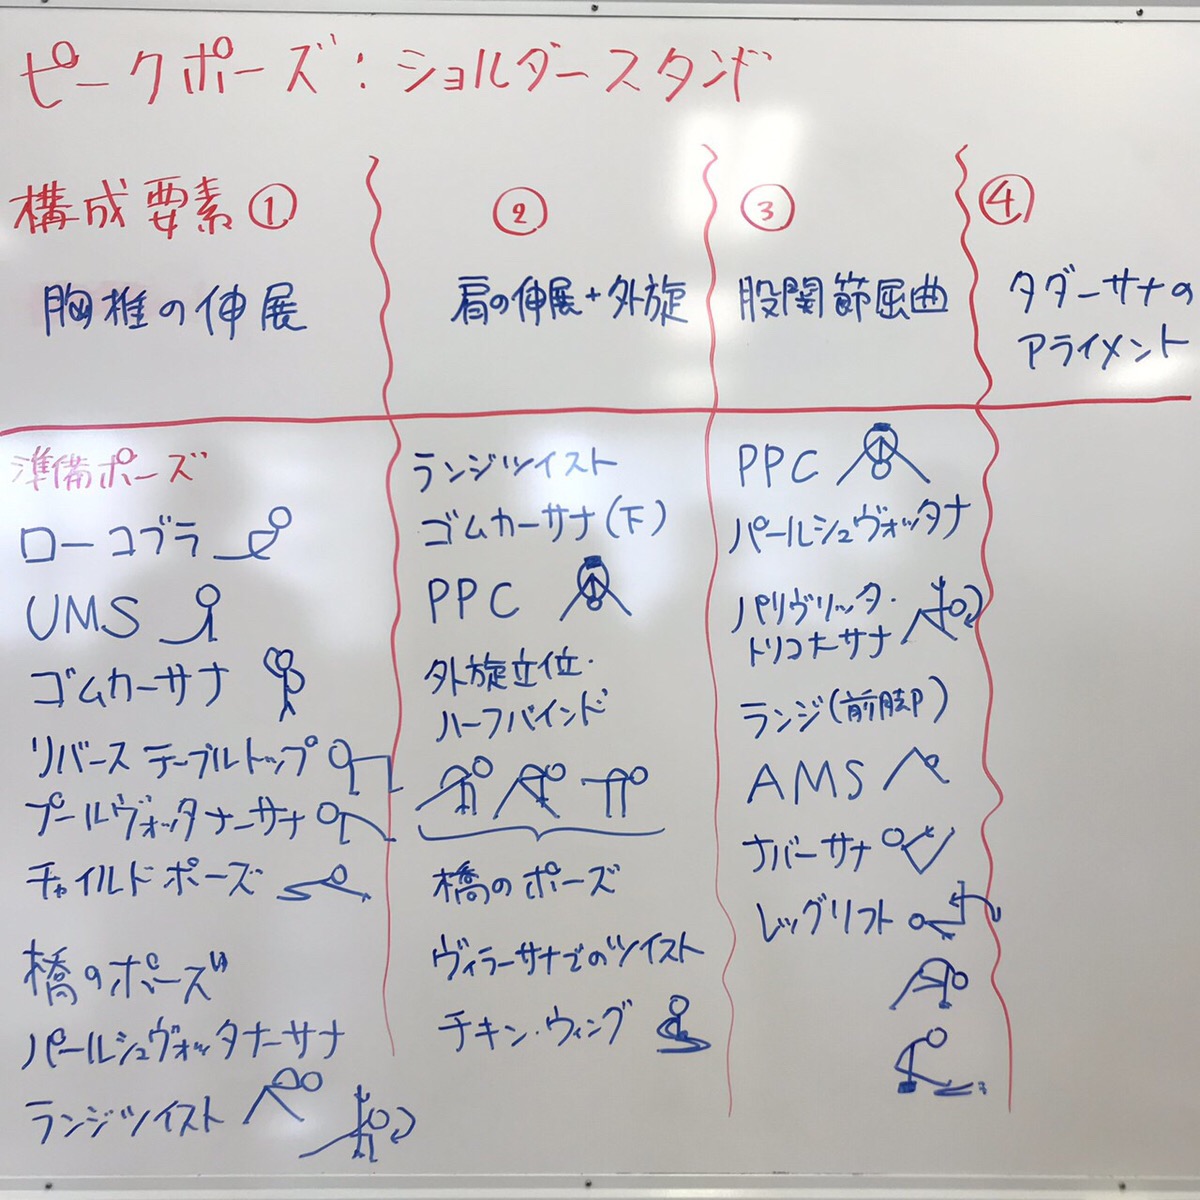 ピークポーズ：ショルダースタンド
構成要素①
胸椎の伸展
②
肩の伸展＋外旋
③
股関節屈曲
④
タダーサナの
アライメント
準備ポーズ
ローコブラ
UMS
ゴムカーサナ
リバーステーブルトップ
プールヴォッタナーサナ
チャイルドポーズ
橋のポーズ
パールシュヴォッタナーサナ
ランジツイスト
ランジツイスト
ゴムカーサナ(下)
PPC
外旋立位・
ハーフバインド
橋のポーズ
ヴィラーサナでのツイスト
チキン・ウィング
PPC
パールシュヴォッタナ
パリヴリッタ・
トリコナーサナ
ランジ(前脚)
AMS
ナバーサナ
レッグリフト